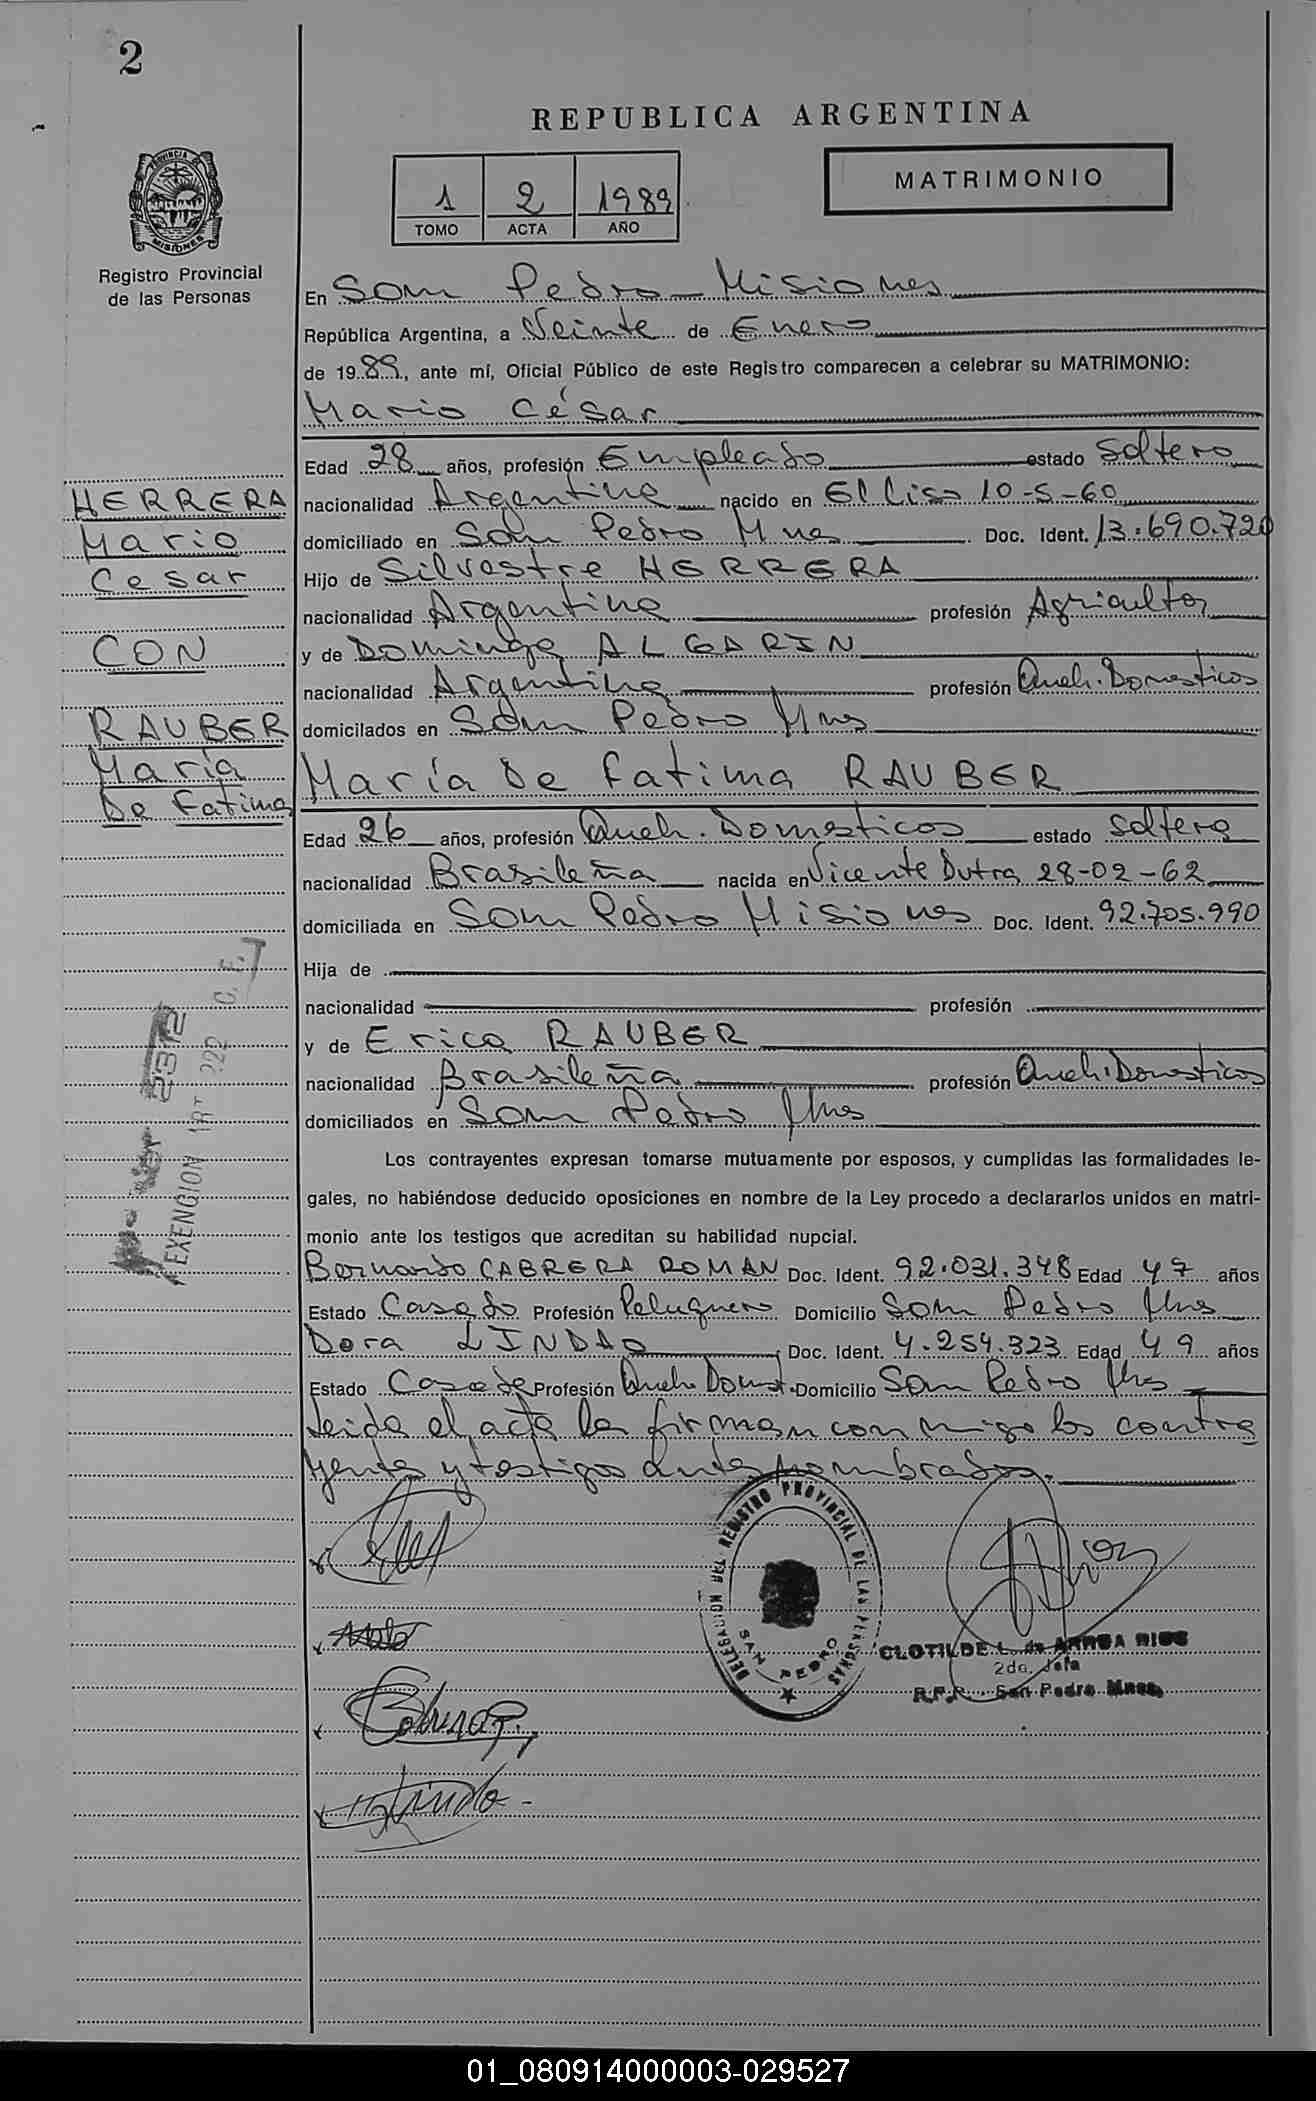 2
REPUBLICA ARGENTINA
PROVINCIA DE MISIONES
Registro Provincial
de las Personas
1 2 1989
TOMO ACTA AÑO
MATRIMONIO
En San Pedro - Misiones
República Argentina, a Veinte de Enero
de 1989, ante mí, Oficial Público de este Registro comparecen a celebrar su MATRIMONIO:
Mario César
Edad 28 años, profesión Empleado estado Soltero
HERRERA
nacionalidad Argentina nacido en El Liso 10-5-60
Mario
domiciliado en San Pedro Mnes Doc. Ident. 13.690.720
Cesar
Hijo de Silvestre HERRERA
nacionalidad Argentina profesión Agricultor
CON
y de Dominga ALGARIN
nacionalidad Argentina profesión Queh. Domesticos
RAUBER
domicilados en San Pedro Mnes
María
María De Fatima RAUBER
De Fatima
Edad 26 años, profesión Queh. Domesticos estado Soltera
nacionalidad Brasileña nacida en Vicente Dutra 28-02-62
domiciliada en San Pedro Misiones Doc. Ident. 92.705.990
Hija de
nacionalidad profesión
y de Erica RAUBER
nacionalidad Brasileña profesión Queh. Domesticos
domiciliados en San Pedro Mnes
EXENCION ART 222 C.F.
2372
Los contrayentes expresan tomarse mutuamente por esposos, y cumplidas las formalidades le-
gales, no habiéndose deducido oposiciones en nombre de la Ley procedo a declararlos unidos en matri-
monio ante los testigos que acreditan su habilidad nupcial.
Bernardo CABRERA ROMAN Doc. Ident. 92.031.348 Edad 47 años
Estado Casado Profesión Peluquero Domicilio San Pedro Mnes
Dora LINDAO Doc. Ident. 4.254.323 Edad 49 años
Estado Casada Profesión Queh. Domst. Domicilio San Pedro Mns
Leida el acta la firman con migo los contra
yentes y testigos antes nombrados.
DELEGACION DEL REGISTRO PROVINCIAL DE LAS PERSONAS
SAN PEDRO
CLOTILDE L. de ARRUA RIOS
2da. Jefa
R.P.P. San Pedro Mnes.
01_080914000003-029527